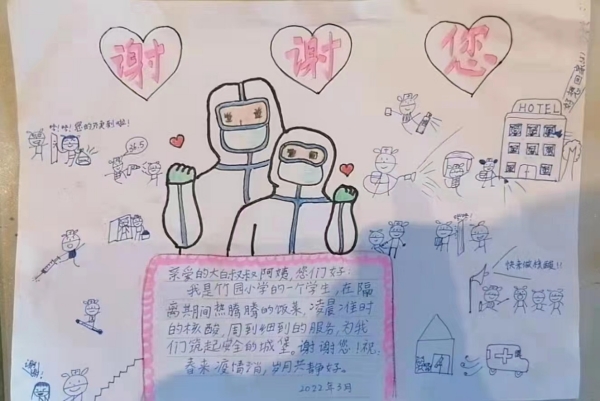 谢 谢 您
HOTEL
咚!咚!您的饭来到啦!
36.5
咚!
快去做核酸!!
亲爱的大白叔叔阿姨,您们好:
我是竹园小学的一个学生,在隔
离期间热腾腾的饭菜,凌晨准时
的核酸,周到细致的服务,为我
们筑起安全的城堡。谢谢您!祝:
春来疫情消,岁月共静好。
2022年3月
谢